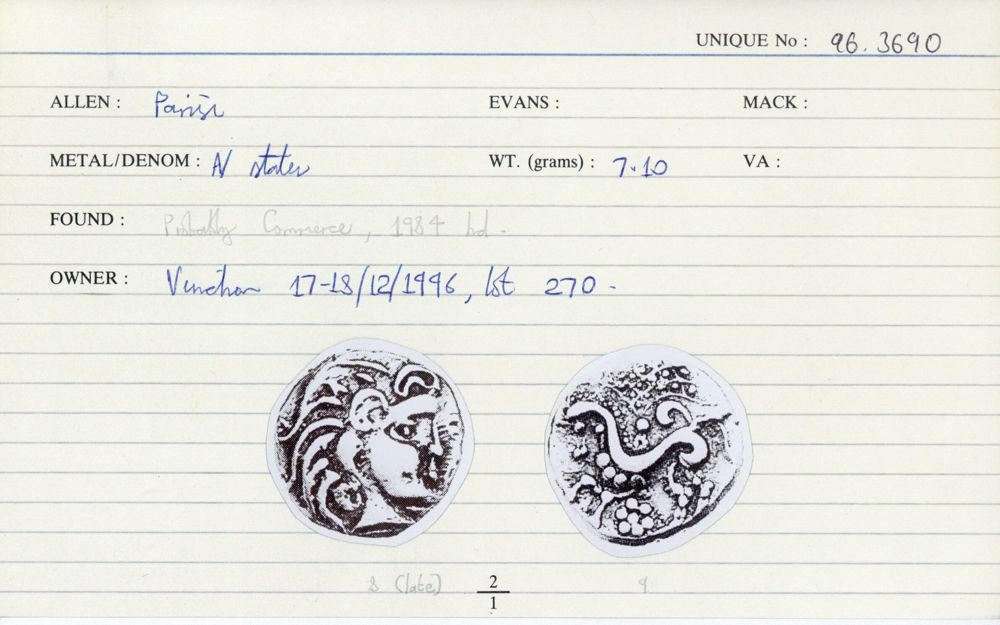 UNIQUE No : 96.3690
ALLEN : Parisii EVANS : MACK :
METAL/DENOM : AV stater WT. (grams) : 7.10 VA :
FOUND : Probably Commerce, 1984 hd.
OWNER : Vinchon 17-18/12/1996, lot 270.
8 (late) 2/1 9